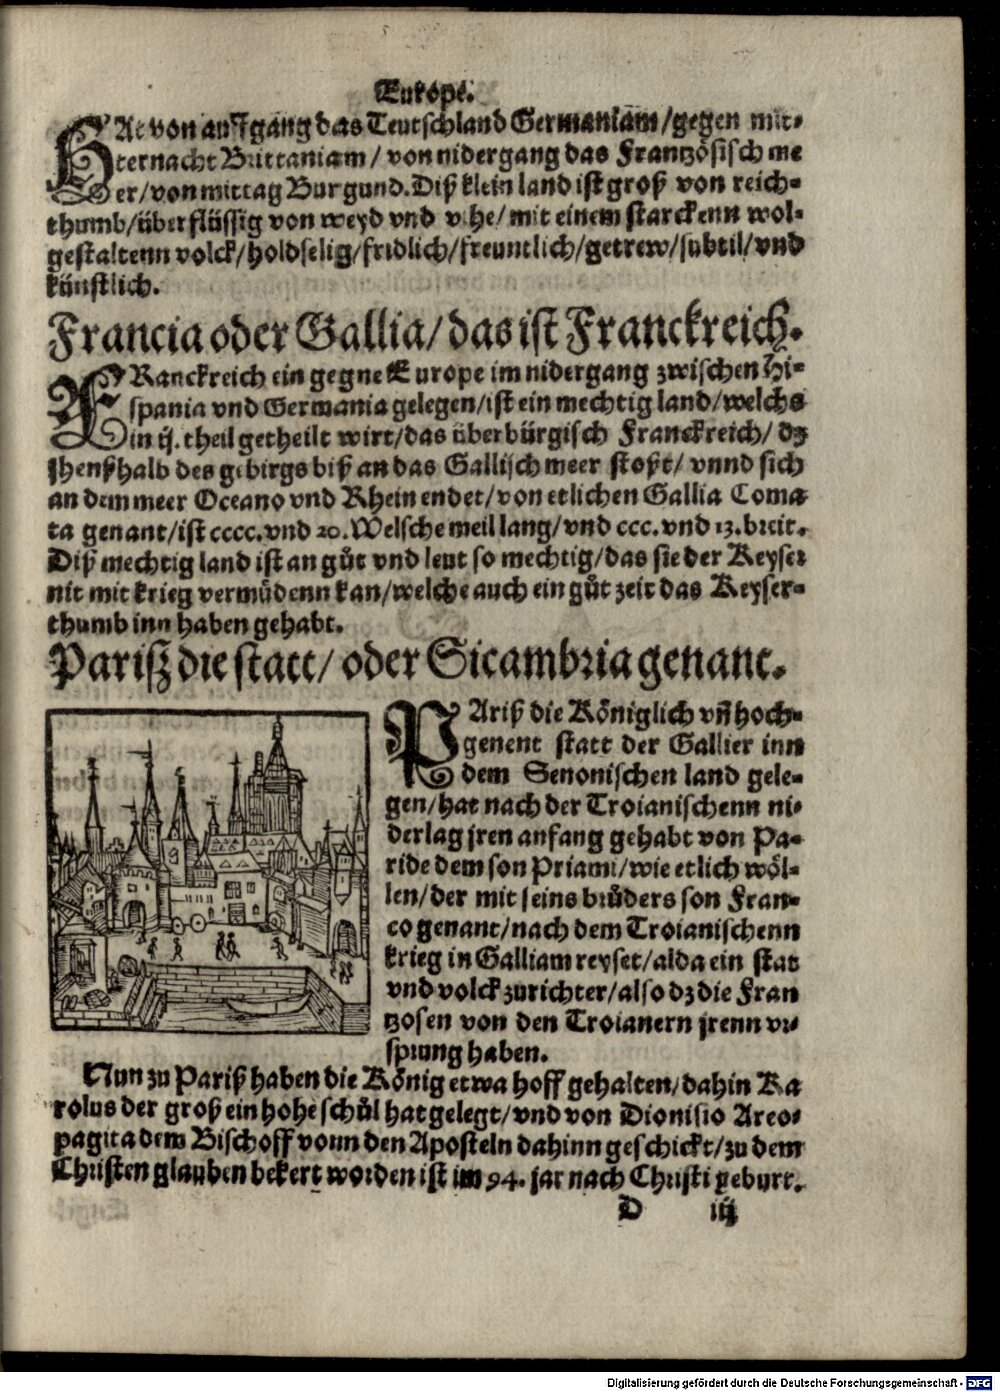 Europe.
HAt von auffgang das Teutschland Germaniam/gegen mit-
ternacht Brittaniam/ von nidergang das Frantzösisch me
er/von mittag Burgund. Diß klein land ist groß von reich-
thumb/überflüssig von weyd vnd vihe/ mit einem starckenn wol-
gestaltenn volck/holdselig/fridlich/freuntlich/getrew/subtil/vnd
künstlich.
Francia oder Gallia/das ist Franckreich.
FRanckreich ein gegne Europe im nidergang zwischen Hi-
spania vnd Germania gelegen/ist ein mechtig land/welchs
in ij. theil getheilt wirt/das überbürgisch Franckreich/ dz
jhenßhalb des gebirgs biß an das Gallisch meer stoßt/ vnnd sich
an dem meer Oceano vnd Rhein endet/von etlichen Gallia Coma
ta genant/ist cccc. vnd 20. Welsche meil lang/vnd ccc. vnd 13. breit.
Diß mechtig land ist an gůt vnd leut so mechtig/das sie der Keyser
nit mit krieg vermüdenn kan/welche auch ein gůt zeit das Keyser-
thumb inn haben gehabt.
Parisz die statt/ oder Sicambria genant.
PAriß die Königlich vñ hoch-
genent statt der Gallier inn
dem Senonischen land gele-
gen/hat nach der Troianischenn ni-
derlag jren anfang gehabt von Pa-
ride dem son Priami/wie etlich wöl-
len/der mit seins brůders son Fran-
co genant/nach dem Troianischenn
krieg in Galliam reyset/alda ein stat
vnd volck zurichtet/also dz die Fran
tzosen von den Troianern jrenn vr-
sprung haben.
Nun zu Pariß haben die König etwa hoff gehalten/dahin Ka
rolus der groß ein hohe schůl hat gelegt/vnd von Dionisio Areo-
pagita dem Bischoff vonn den Aposteln dahinn geschickt/zu dem
Christen glauben bekert worden ist im 94. jar nach Christi geburt.
D iij
Digitalisierung gefördert durch die Deutsche Forschungsgemeinschaft - DFG